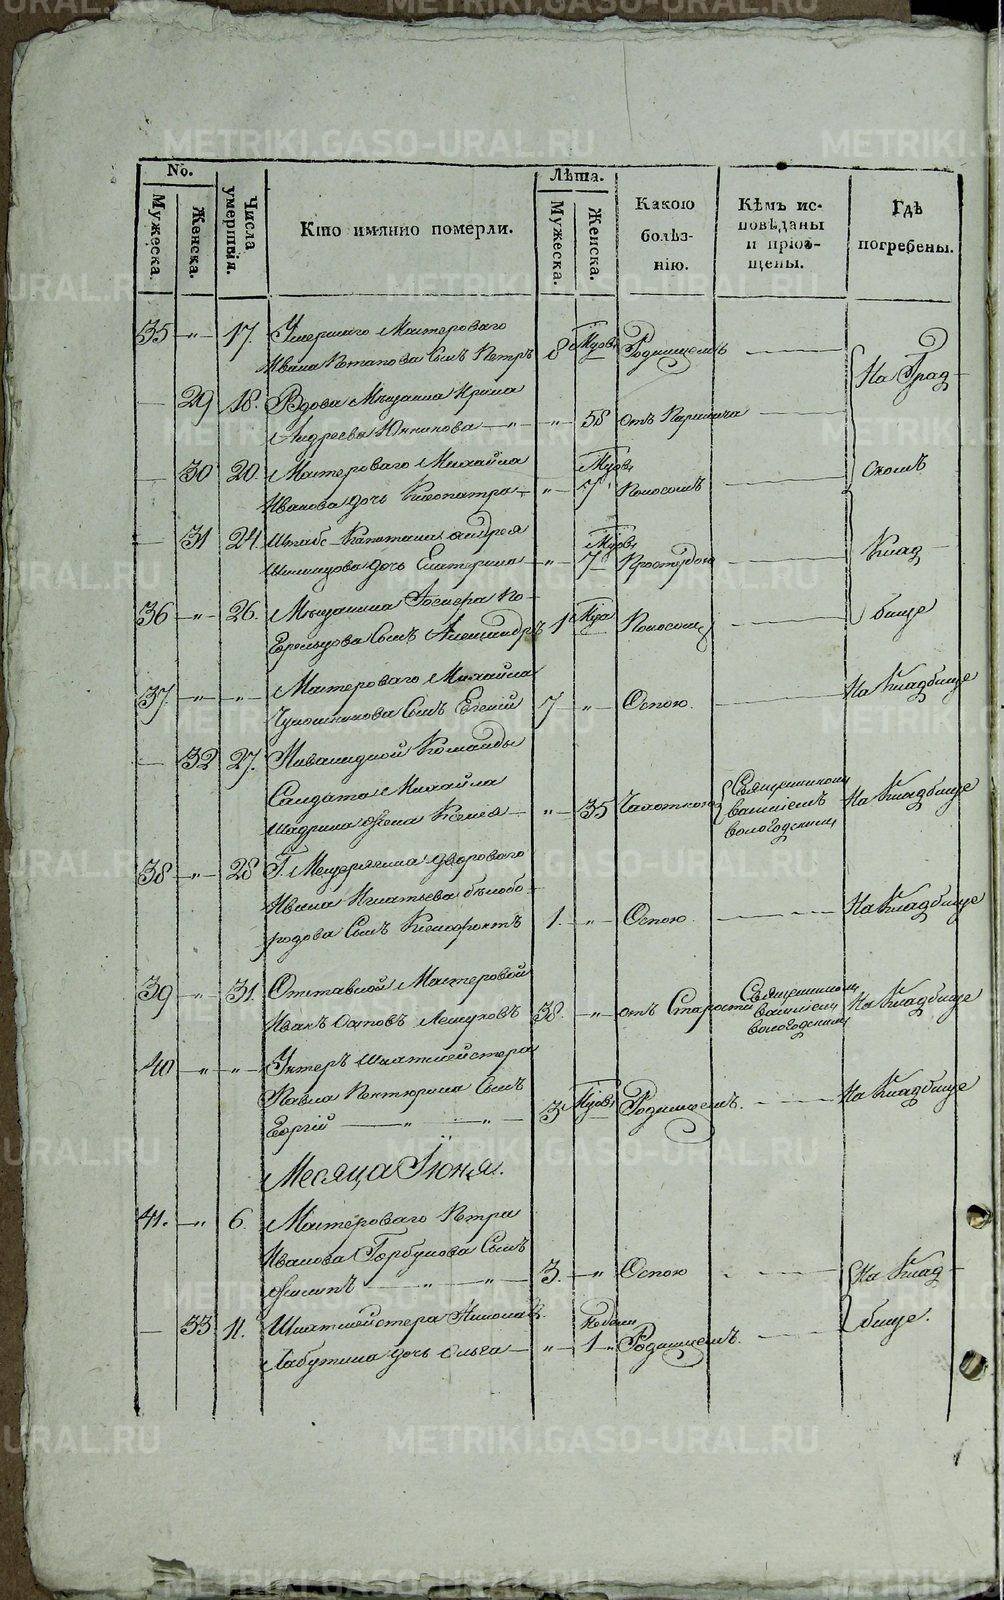 METRIKI.GASO-URAL.RU
No.
Мужеска.
Женска.
Числа умершія.
Кто имянно померли.
Лѣта.
Мужеска.
Женска.
Какою
болѣз-
нію.
Кѣмъ ис-
повѣданы
и пріоб-
щены.
Гдѣ
погребены.
35 — „ — 17. Умершаго Мастероваго
Ивана Потапова сынъ Петръ 8 Родимцемъ
На Град-
— 29 18. Вдова Мещанка Ирина
Андреева — „ — „ — 58 отъ Паралича
— 30 20. Мастероваго Михайла
Иванова дочь Клеопатра — „ — 7 Поносомъ
скомъ
— 31 24. Штабс-Капитана Андрея
дочь Екатерина — „ — 7
Клад-
36 — „ — 26. Мещанина
сынъ Александръ 1 Поносомъ
бище
37. — „ — „ — Мастероваго Михайла
сынъ Евгений 7 — „ — Оспою.
На Кладбище
— 32 27. Инвалидной Команды
Салдата Михайла
Шадрина жена Ксенія — „ — 35 Чахоткою
Священникомъ
Вологодскимъ
На Кладбище
38 — „ — 28 Г. двороваго
Ивана Игнатьева бѣлобо-
родова сынъ Ксенофонтъ 1. „ Оспою
На Кладбище
39 — „ — 31. Отставной Мастеровой
Иванъ Осиповъ 38. — „ — отъ Старости
Священникомъ
Вологодскимъ
На Кладбище
40 — „ — „ — Унтеръ Шихтмейстера
Павла сынъ
Георгій — „ — „ — 3 Родимцемъ.
На Кладбище
Месяца Іюня.
41. — „ 6. Мастероваго Петра
Иванова Горбунова сынъ
— „ — „ — 3. — „ Оспою
На Клад-
— 33 11. Шихтмейстера Николая
дочь Ольга — „ — 1 „ Родимцемъ.
Недели
бище.